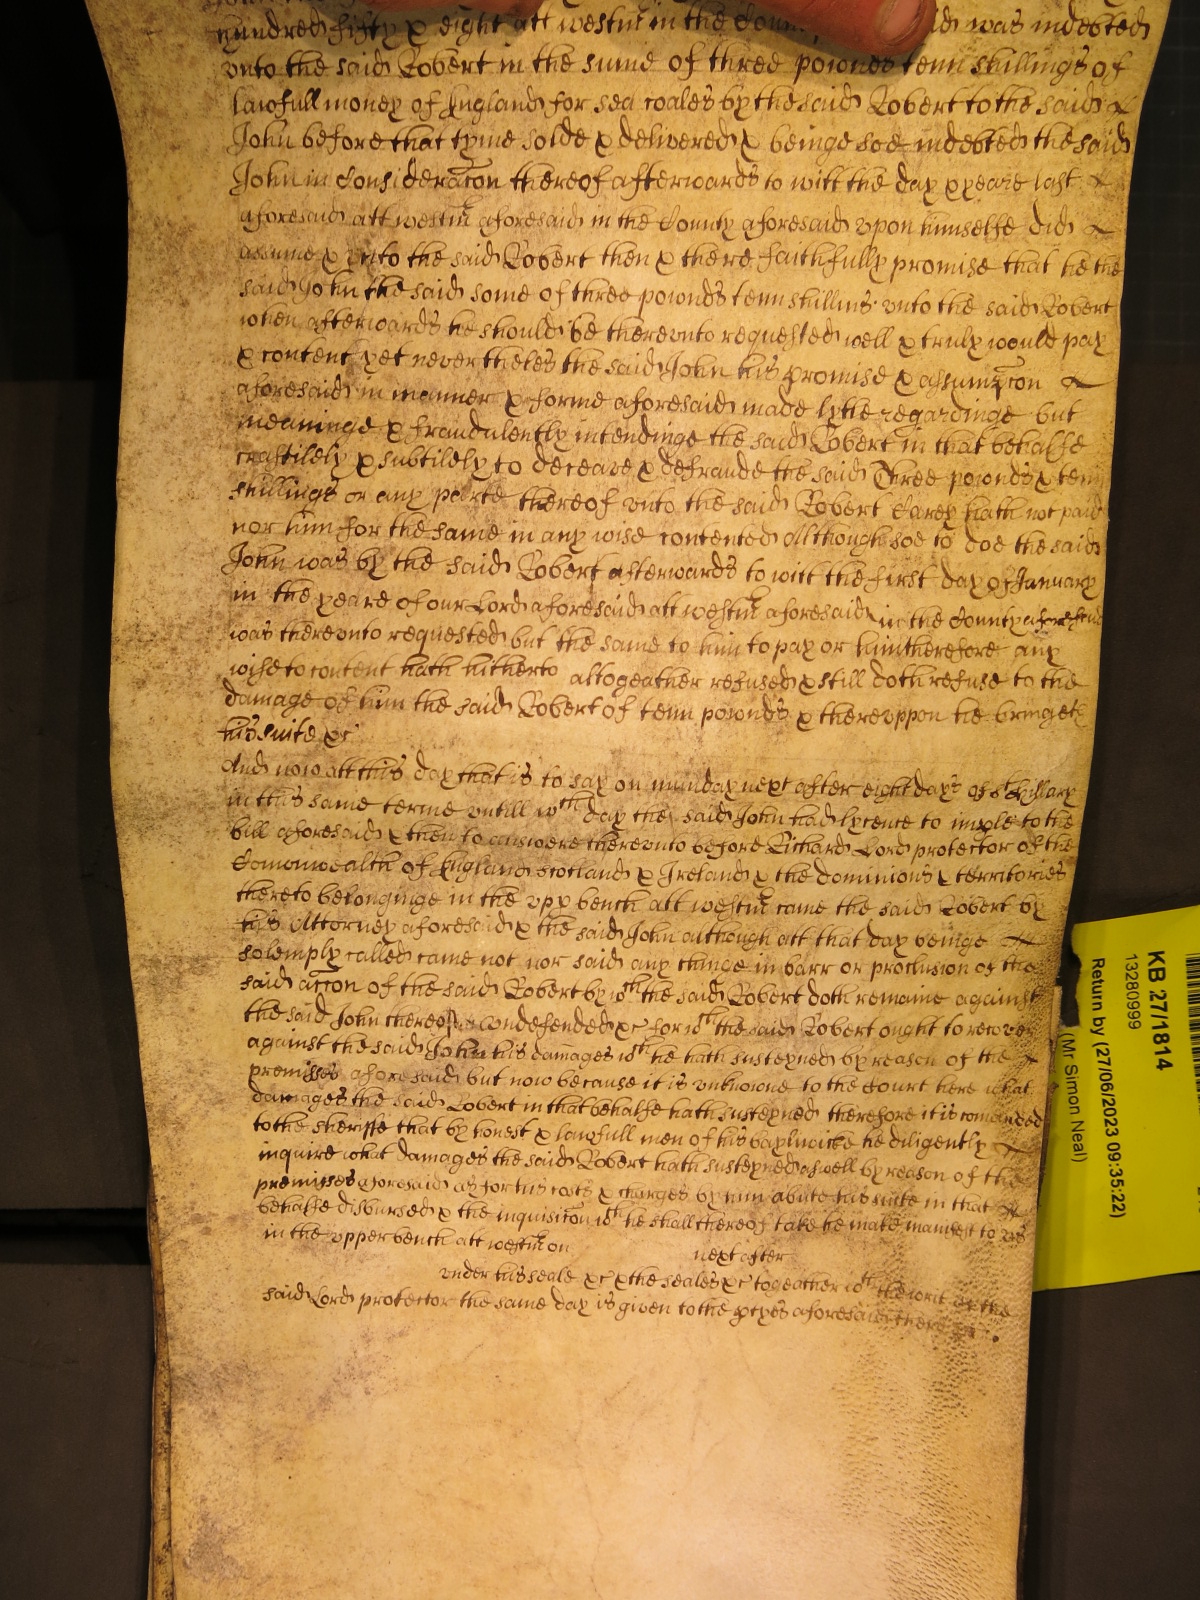 hundred fifty & eight att westm in the Coun was indebted
vnto the said Robert in the sume of three pownds tenn shillings of
lawfull money of England for sea coales by the said Robert to the said
John before that tyme solde & delivered & beinge soe indebted the said
John in consideracon thereof afterwards to witt the day & yeare last
aforesaid att westm aforesaid in the County aforesaid vpon himselfe did
assume & vnto the said Robert then & there faithfully promise that he the
said John the said some of three pownds tenn shillins vnto the said Robert
when afterwards he should be therevnto requested well & truly would pay
& content yet nevertheles the said John his promise & assumpcon
aforesaid in manner & forme aforesaid made lytle regardinge but
meaninge & fraudulently intendinge the said Robert in that behalfe
craftilely & subtilely to deceave & defraude the said Three pownds & tenn
shillings or any parte thereof vnto the said Robert Carey hath not paid
nor him for the same in any wise contented Although soe to doe the said
John was by the said Robert afterwards to witt the first day of January
in the yeare of our Lord aforesaid att westm aforesaid in the County aforesaid
was therevnto requested but the same to him to pay or him therefore any
wise to content hath hitherto altogeather refused & still doth refuse to the
damage of him the said Robert of tenn pownds & therevppon he bringeth
his suite &c
And now att this day that is to say on munday next after eight days of st Hillary
in this same terme vntill wch day the said John had lycence to imple to the
bill aforesaid & then to answere therevnto before Richard Lord protector of the
Comonwealth of England Scotland & Ireland & the dominions & territories
thereto belonginge in the vpp bench att westm came the said Robert by
his Attorney aforesaid & the said John although att that day beinge
solemply called came not nor said any thinge in barr or preclusion of the
said accon of the said Robert by wch the said Robert doth remaine against
the said John thereof vndefended &c for wch the said Robert ought to recover
against the said John his damages wch he hath susteyned by reason of the
premisses aforesaid but now because it is vnknowne to the Court here what
damages the said Robert in that behalfe hath susteyned therefore it is comanded
to the sheriffe that by honest & lawfull men of his baylwicke he diligently
inquire what damages the said Robert hath susteyned aswell by reason of the
premisses aforesaid as for his costs & charges by him about his suite in that
behalfe disbursed & the inquisicon wch he shall thereof take he make manifest to vs
in the vpper bench att westm on next after
vnder his seale &c & the seales &c togeather wth the writ of the
said Lord protector the same day is given to the ptyes aforesaid there
KB 27/1814
13280999
Return by (27/06/2023 09:35:22)
(Mr Simon Neal)